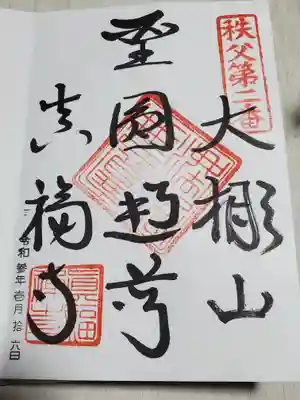 秩父第二番
大棚山
聖圓通尊
真福寺
令和参年壱月拾六日